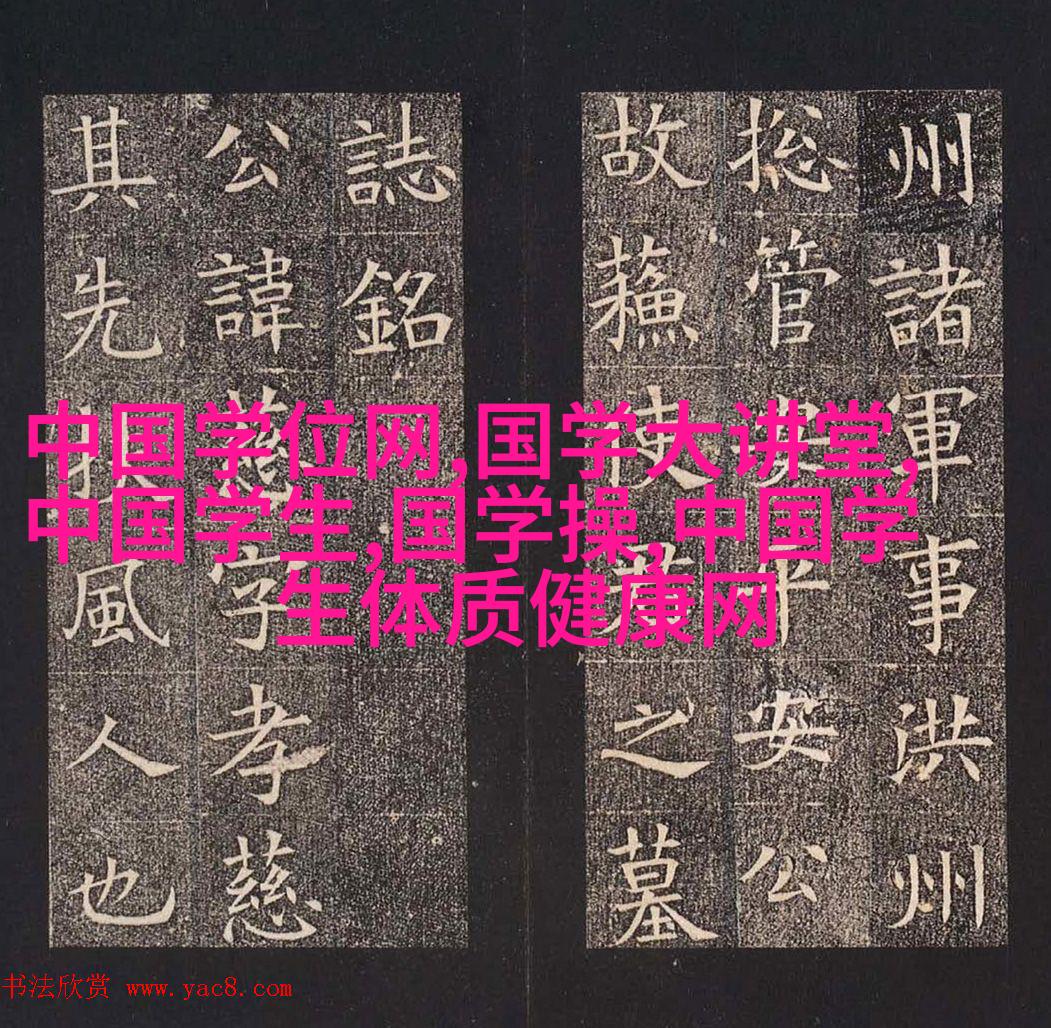 州諸軍事洪州
揔管安平安公
故蘓使君之墓
誌銘
公諱慈字孝慈
其先扶風人也
中国学位网,国学大讲堂,
中国学生,国学操,中国学
生体质健康网
书法欣赏 www.yac8.com